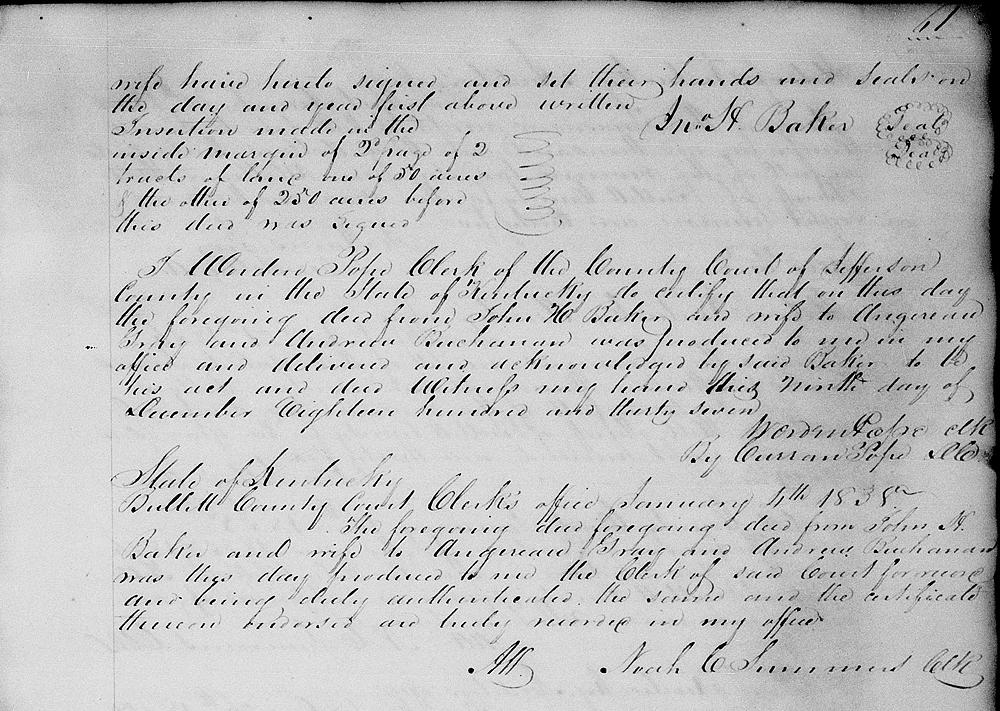 61
wife have hereto signed and set their hands and seals on
the day and year first above written
Jno. H. Baker Seal
Seal
Insertion made in the
inside margin of 2d page of 2
tracts of land one of 50 acres
& the other of 250 acres before
this deed was signed
I Worden Pope Clerk of the County Court of Jefferson
County in the State of Kentucky do certify that on this day
the foregoing deed from John H Baker and wife to Angereau
Gray and Andrew Buchanan was produced to me in my
office and delivered and acknowledged by said Baker to be
his act and deed Witness my hand this ninth day of
December Eighteen hundred and thirty seven
Worden Pope clk
By Curran Pope D.C.
State of Kentucky
Bullitt County Court Clerk's office January 4th 1838
The foregoing deed foregoing deed from John H.
Baker and wife to Angereau Gray and Andrew Buchanan
was this day produced to me the Clerk of said Court for record
and being duly authenticated the same and the certificate
thereon endorsed are truly recorded in my office
Att. Noah C Summers Clk